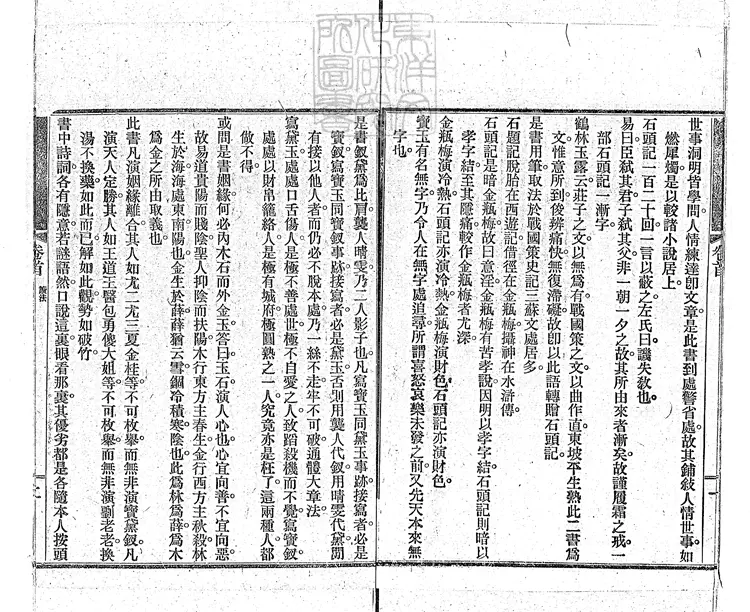 世事洞明皆學問人情練達卽文章是此書到處警省處故其鋪敍人情世事如
燃犀燭是以較諸小說居上
石頭記一百二十回一言以蔽之左氏曰譏失敎也
易曰臣弑其君子弑其父非一朝一夕之故其所由來者漸矣故謹履霜之戒一
部石頭記一漸字
鶴林玉露云莊子之文以無爲有戰國策之文以曲作直東坡平生熟此二書爲
文惟意所到俊辨痛快無復滯礙故卽以此語轉贈石頭記
是書用筆取法於戰國策史記三蘇文處居多
石頭記脫胎在西遊記借徑在金瓶梅攝神在水滸傳
石頭記是暗金瓶梅故曰意淫金瓶梅有苦孝說因明以孝字結石頭記則暗以
孝字結至其隱痛較作金瓶梅者尤深
金瓶梅演冷熱石頭記亦演冷熱金瓶梅演財色石頭記亦演財色
寶玉有名無字乃令人在無字處追尋所謂喜怒哀樂未發之前又先天本來無
字也
是書釵黛爲比肩襲人晴雯乃二人影子也凡寫寶玉同黛玉事跡接寫者必是
寶釵寫寶玉同寶釵事跡接寫者必是黛玉否則用襲人代釵用晴雯代黛間
有接以他人者而仍必不脫本處乃一絲不走牢不可破通體大章法
寫黛玉處處口舌傷人是極不善處世極不自愛之人致蹈殺機而不覺寫寶釵
處處以財帛籠絡人是極有城府極圓熟之一人究竟亦是枉了這兩種人都
做不得
或問是書姻緣何必內木石而外金玉答曰玉石演人心也心宜向善不宜向惡
故易道貴陽而賤陰聖人抑陰而扶陽木行東方主春生金行西方主秋殺林
生於海海處東南陽也金生於薛薛猶云雪錮冷積寒陰也此爲林爲薛爲木
爲金之所由取義也
此書凡演姻緣離合其人如尤二尤三夏金桂等不可枚舉而無非演寶黛釵凡
演天人定勝其人如王道王醫包勇傻大姐等不可枚舉而無非演劉老老換
湯不換藥如此而已解如此觀勢如破竹
書中詩詞各有隱意若謎語然口說這裏眼看那裏其優劣都是各隨本人按頭
卷首
讀法
二
卷首